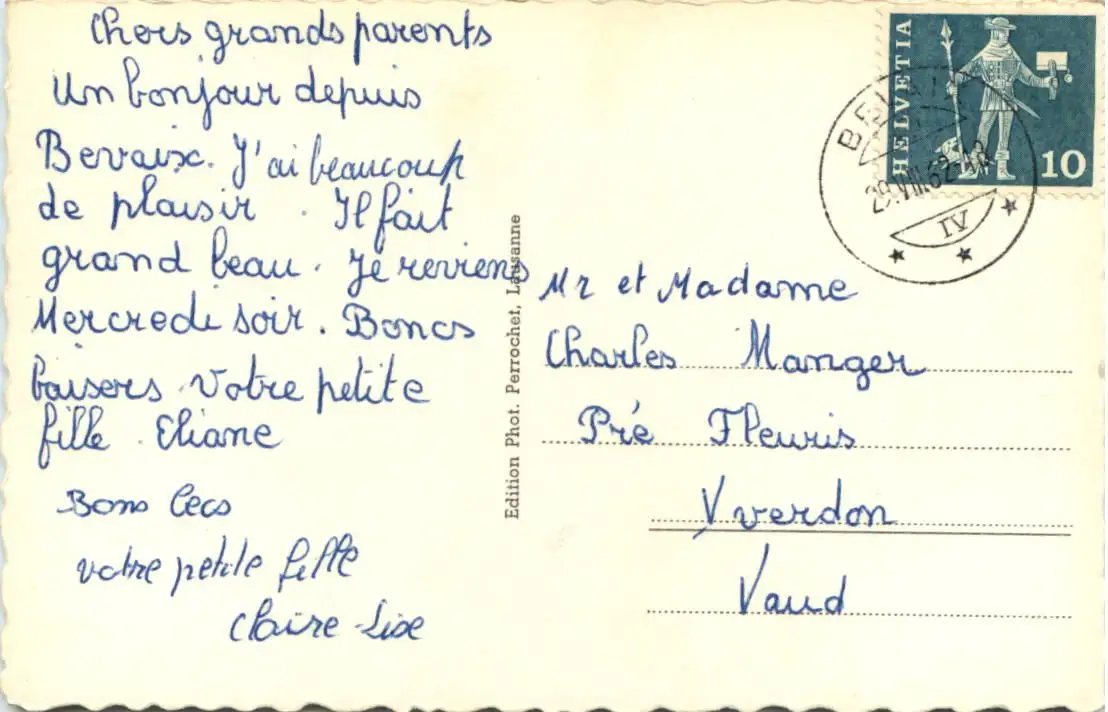 Chers grands parents
Un bonjour depuis
Bevaix. J'ai beaucoup
de plaisir. Il fait
grand beau. Je reviens
Mercredi soir. Boncs
baisers Votre petite
fille. Eliane
Bons becs
votre petite fille
Claire-Lise
Edition Phot. Perrochet, Lausanne
HELVETIA
10
29.VIII.62
IV
Mr et Madame
Charles Manger
Pré Fleuris
Yverdon
Vaud